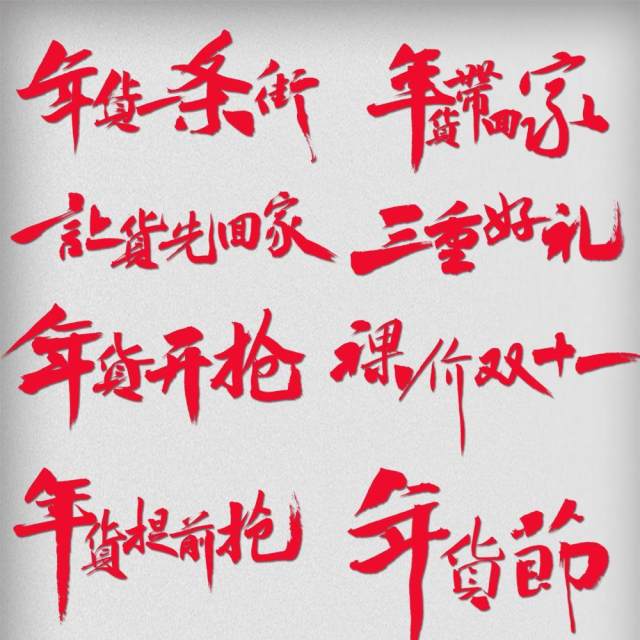 年货一条街
年货带回家
让货先回家
三重好礼
年货开抢
裸价双十一
年货提前抢
年货節